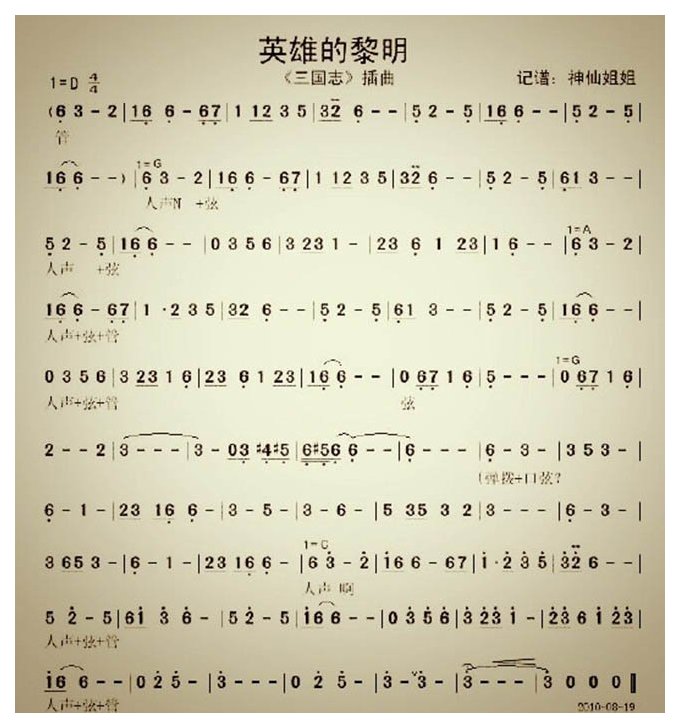 英雄的黎明
1=D 4/4 《三国志》插曲 记谱：神仙姐姐
(6 3 - 2|16 6 - 67|1 12 3 5|32 6 - -|5 2 - 5|16 6 - -|5 2 - 5|
管
16 6 - -)|6 3 - 2|16 6 - 67|1 12 3 5|32 6 - -|5 2 - 5|61 3 - -|
1=G
人声N +弦
5 2 - 5|16 6 - -|0 3 5 6|3 23 1 -|23 6 1 23|1 6 - -|6 3 - 2|
1=A
人声 +弦
16 6 - 67|1 ·2 3 5|32 6 - -|5 2 - 5|61 3 - -|5 2 - 5|16 6 - -|
人声+弦+管
0 3 5 6|3 23 1 6|23 6 1 23|16 6 - -|0 67 1 6|5 - - -|0 67 1 6|
1=G
人声+弦+管 弦
2 - - 2|3 - - -|3 - 03 #4#5|6#56 6 - -|6 - - -|6 - 3 -|3 5 3 -|
(弹拨+口弦?
6 - 1 -|23 16 6 -|3 - 5 -|3 - 6 -|5 35 3 2|3 - - -|6 - 3 -|
3 65 3 -|6 - 1 -|23 16 6 -|6 3 - 2|16 6 - 67|1 · 2 3 5|32 6 - -|
1=C
人声 啊
5 2 - 5|61 3 6 -|5 2 - 5|16 6 - -|0 3 5 6|3 23 1 -|23 6 1 23|
人声+弦+管
16 6 - -|0 2 5 -|3 - - -|0 2 5 -|3 - 3 -|3 - - -|3 0 0 0‖
人声+弦+管
2010-08-19